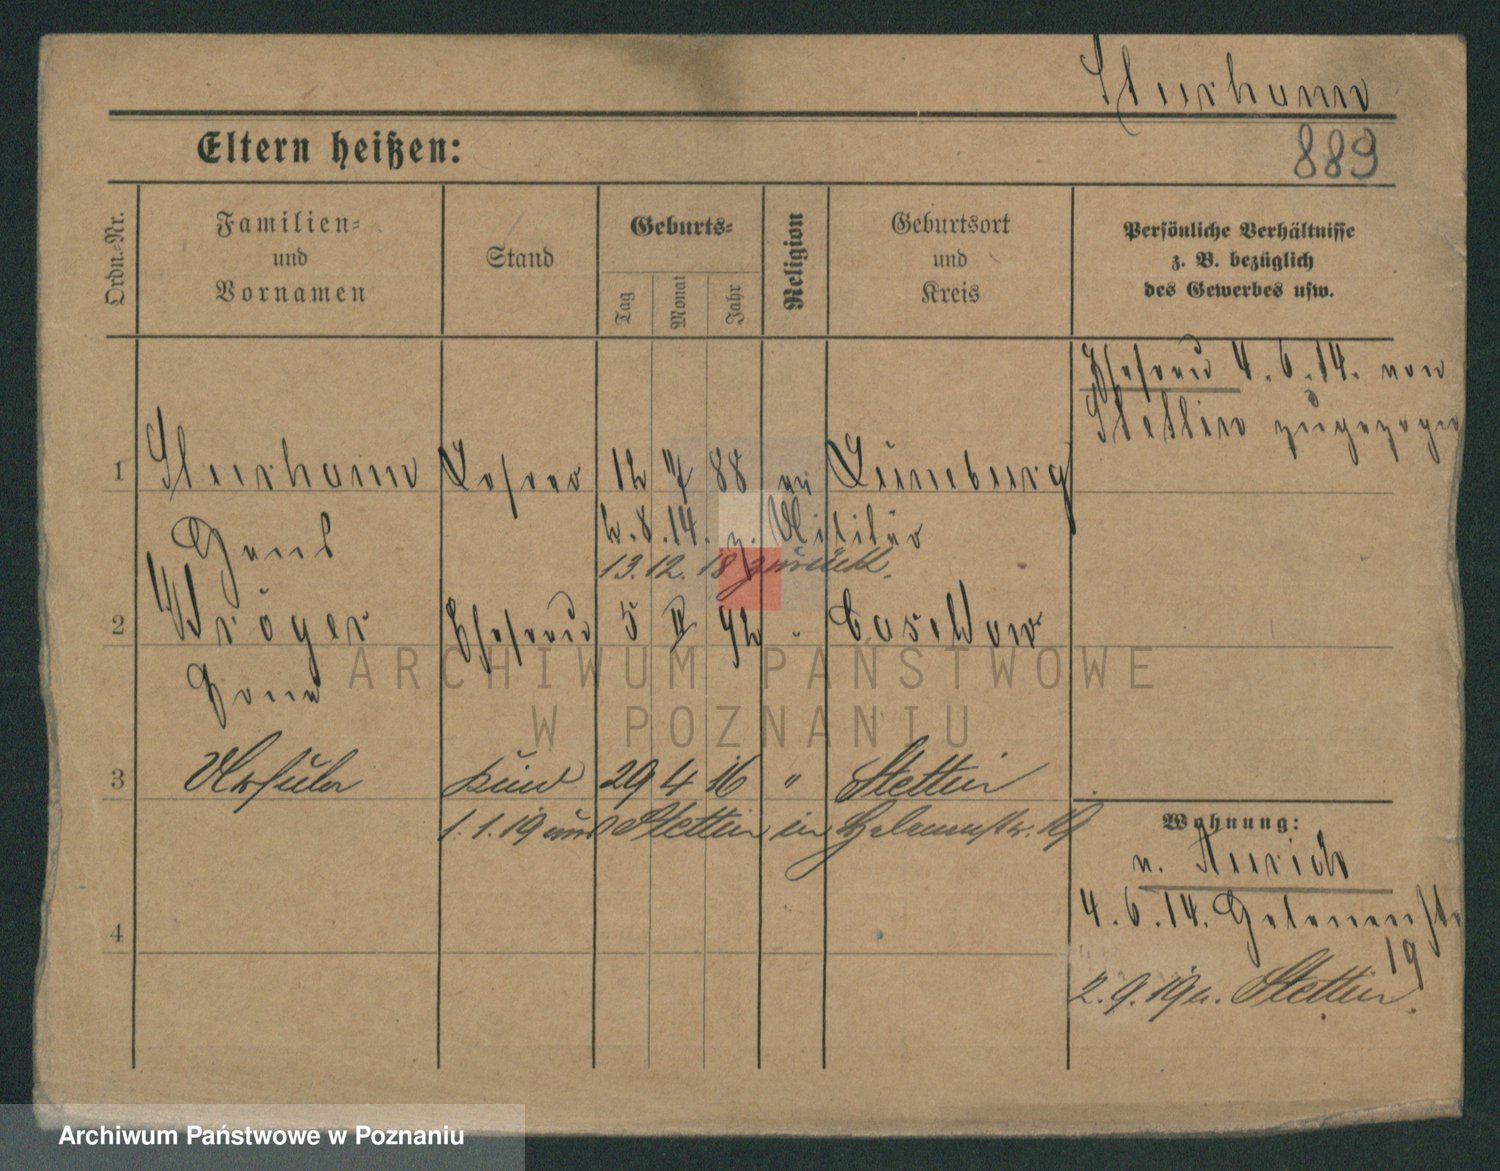 889
Eltern heißen:
Ordn.-Nr.
Familien-
und
Vornamen
Stand
Geburts-
Tag
Monat
Jahr
Religion
Geburtsort
und
Kreis
Persönliche Verhältnisse
z. B. bezüglich
des Gewerbes usw.
Ehefrau 4.6.14. von
Stettin zugezogen
1 Lehrer 12 88 Lüneburg
Hans
2.8.14. z. Militär
13.12.18 zurück.
2 Kröger Ehefrau 5 92 "
3 Ursula Kind 29 4 16 " Stettin
1.1.19 Stettin in 19
4
Wohnung:
4.6.14. Helenenstr
19
2.9.19 Stettin.
ARCHIWUM PAŃSTWOWE
W POZNANIU
Archiwum Państwowe w Poznaniu